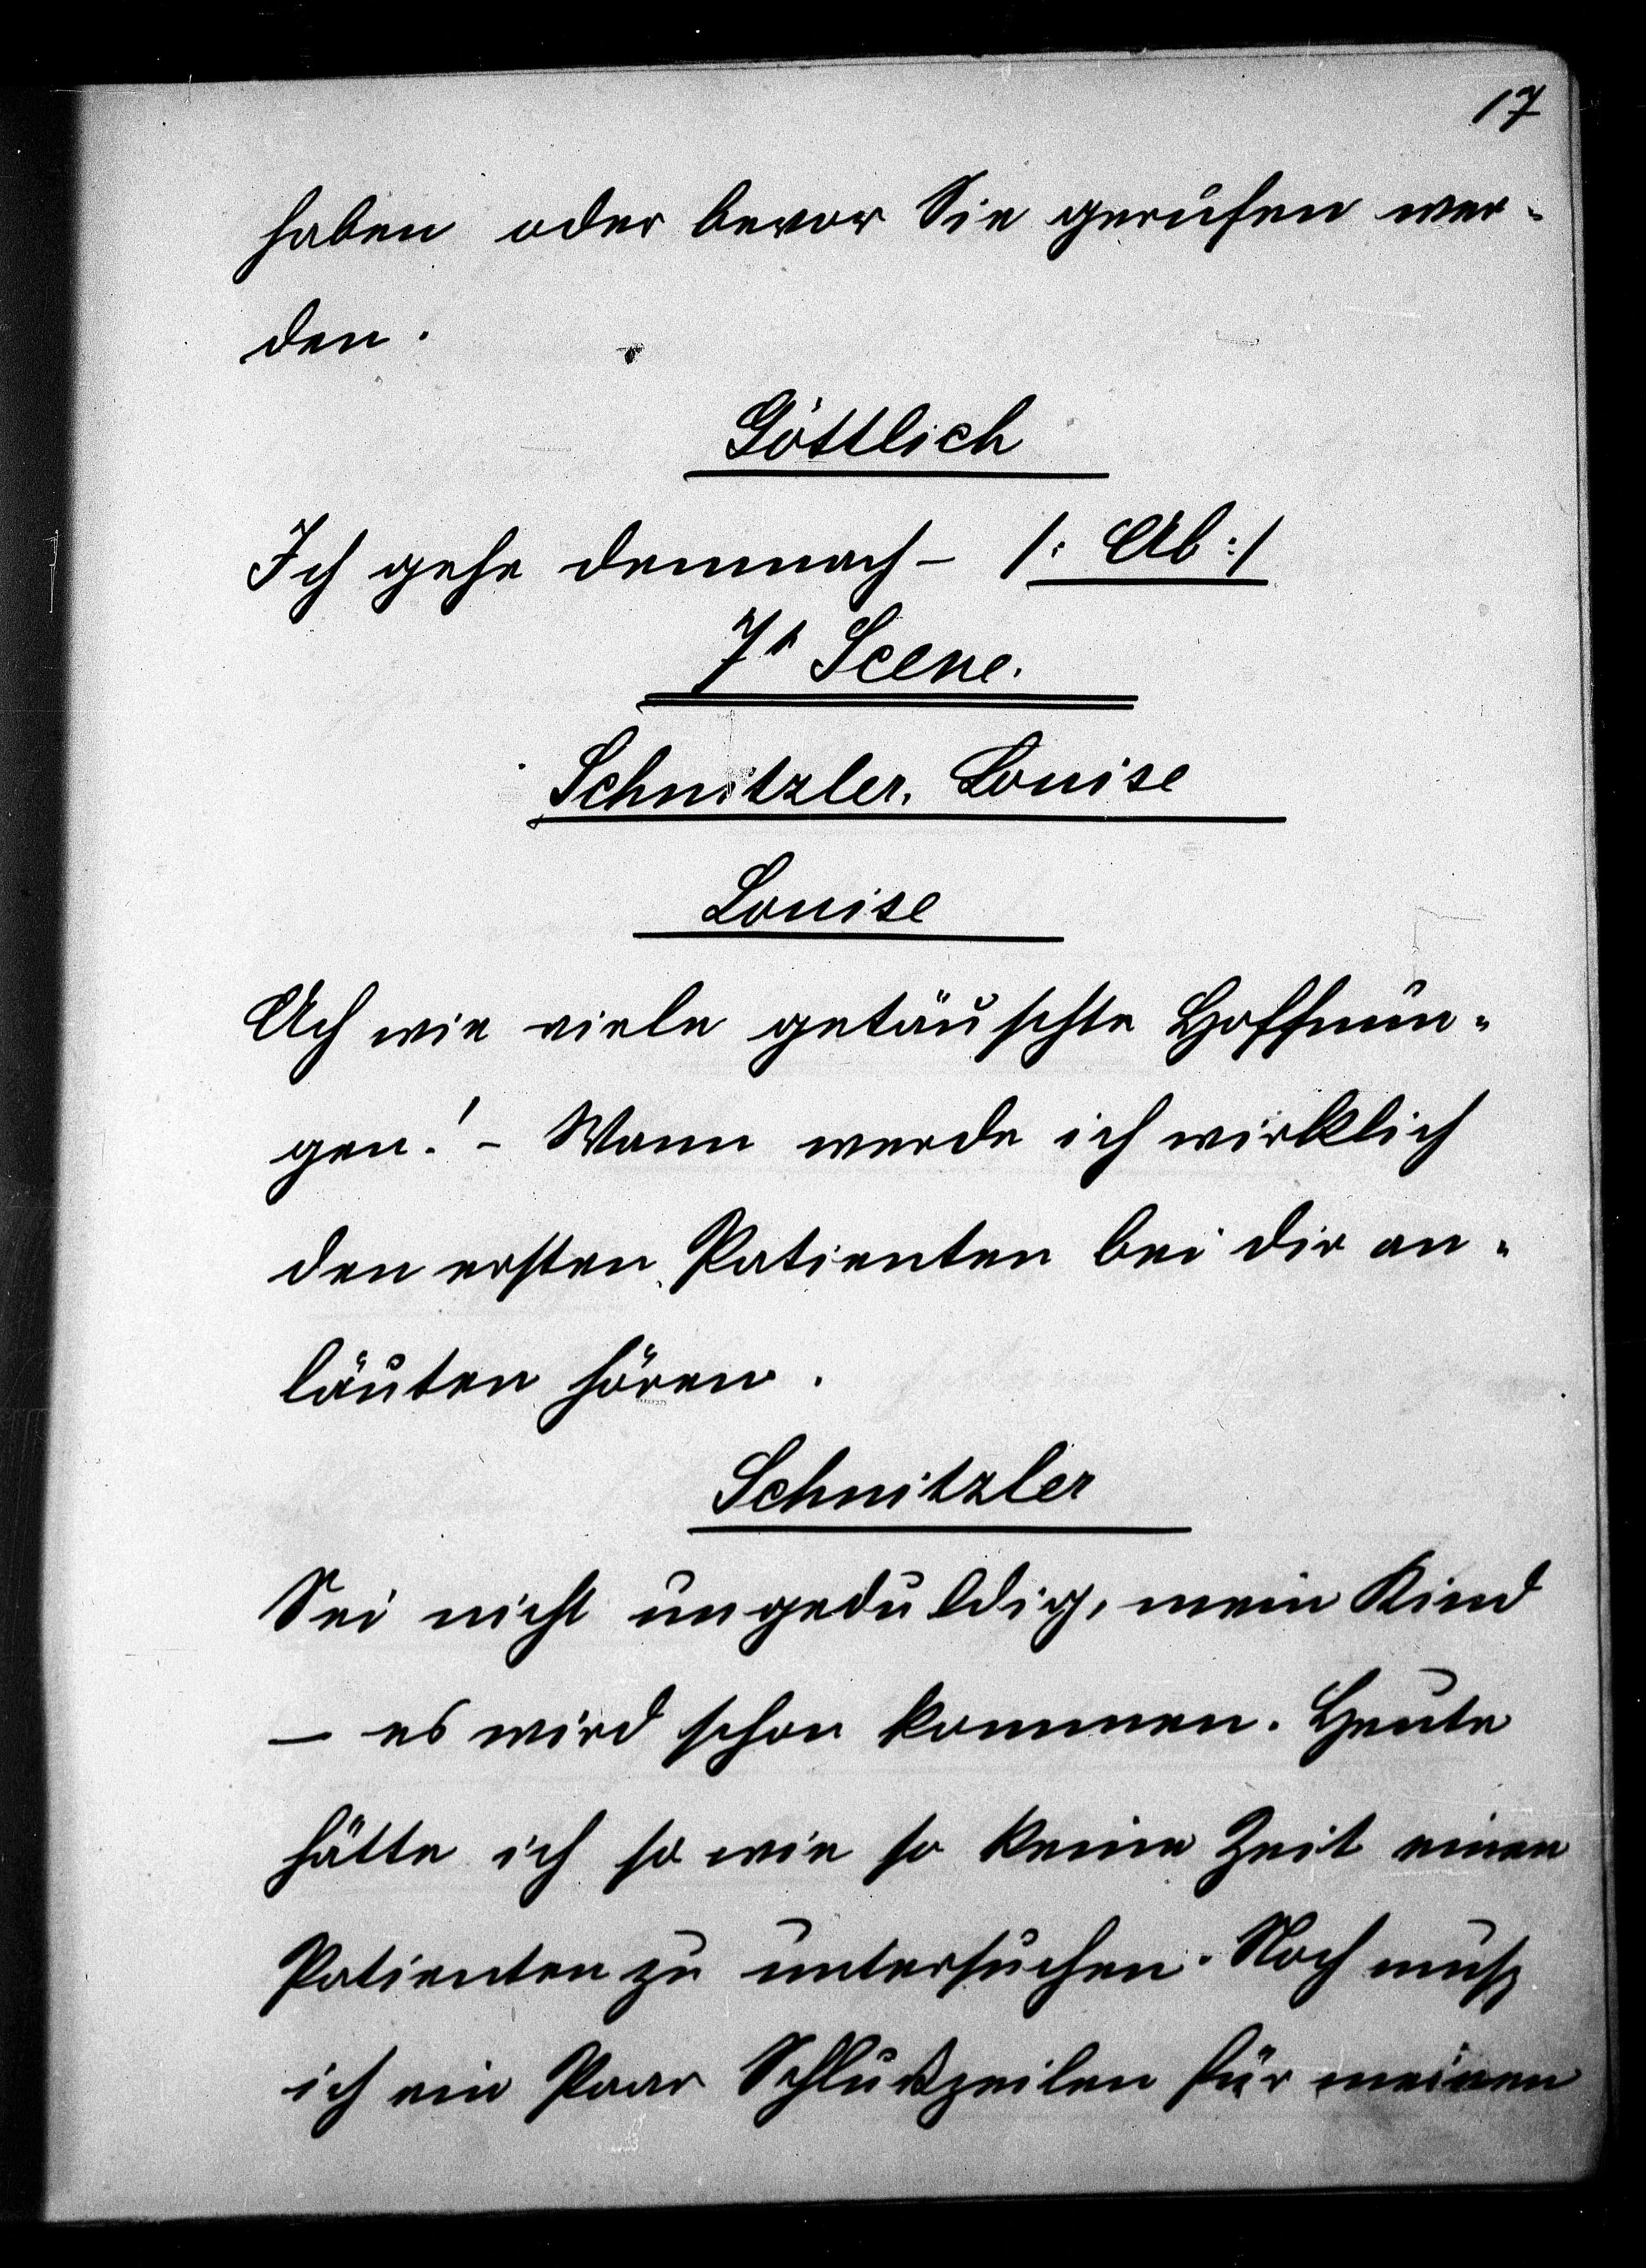 17
haben oder bevor Sie gerufen wer-
den.
Göttlich
Ich gehe demnach – /: Ab :/
7t Scene.
Schnitzler. Louise
Louise
Ach wie viele getäuschte Hoffnun-
gen! – Wann werde ich wirklich
den ersten Patienten bei dir an-
läuten hören.
Schnitzler
Sei nicht ungeduldig, mein Kind
– es wird schon kommen. Heute
hätte ich so wie so keine Zeit einen
Patienten zu untersuchen. Noch muß
ich ein Paar Schlußzeilen für meinen